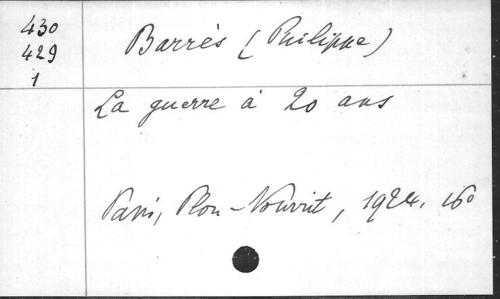 430
429
1
Barrès (Philippe)
La guerre à 20 ans
Paris, Plon-Nourrit, 1924. 16°